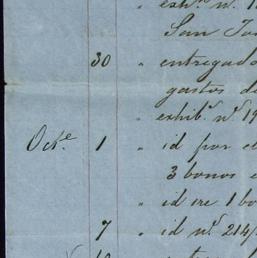 " exhbn. nº 1
San Jo
30 " entregado
gastos d
" exhibn. nº 19
Octe. 1 " id por e
3 bonos
" id ire 1 bo
7 " id nº 214/